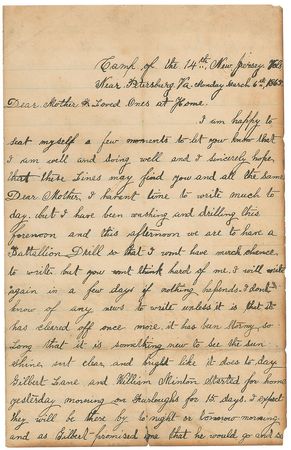 Camp of the 14th, New Jersey. Vols
Near Petersburg, Va. Monday March 6th, 1865.
Dear Mother & Loved Ones at Home.
I am happy to
seat myself a few moments to let you know that
I am well and doing well and I sincerely hope
that these Lines may find you and all the same
Dear Mother, I havent time to write much to
day. but I have been washing and drilling this
forenoon and this afternoon we are to have a
Battallion Drill so that I wont have much chance
to write but you wont think hard of me. I will write
again in a few days if nothing hapends. I dont
know of any news to write unless it is that it
has cleared off once more. it has been stormy so
Long that it is something new to see the sun
shine, out clear, and bright like it does to day
Gilbert Lane and William Minton Started for home
yesterday morning on Furloughs for 15 days. I expect
they will be there by to night or tomorrow morning
and as Gilbert promised me that he would go and see